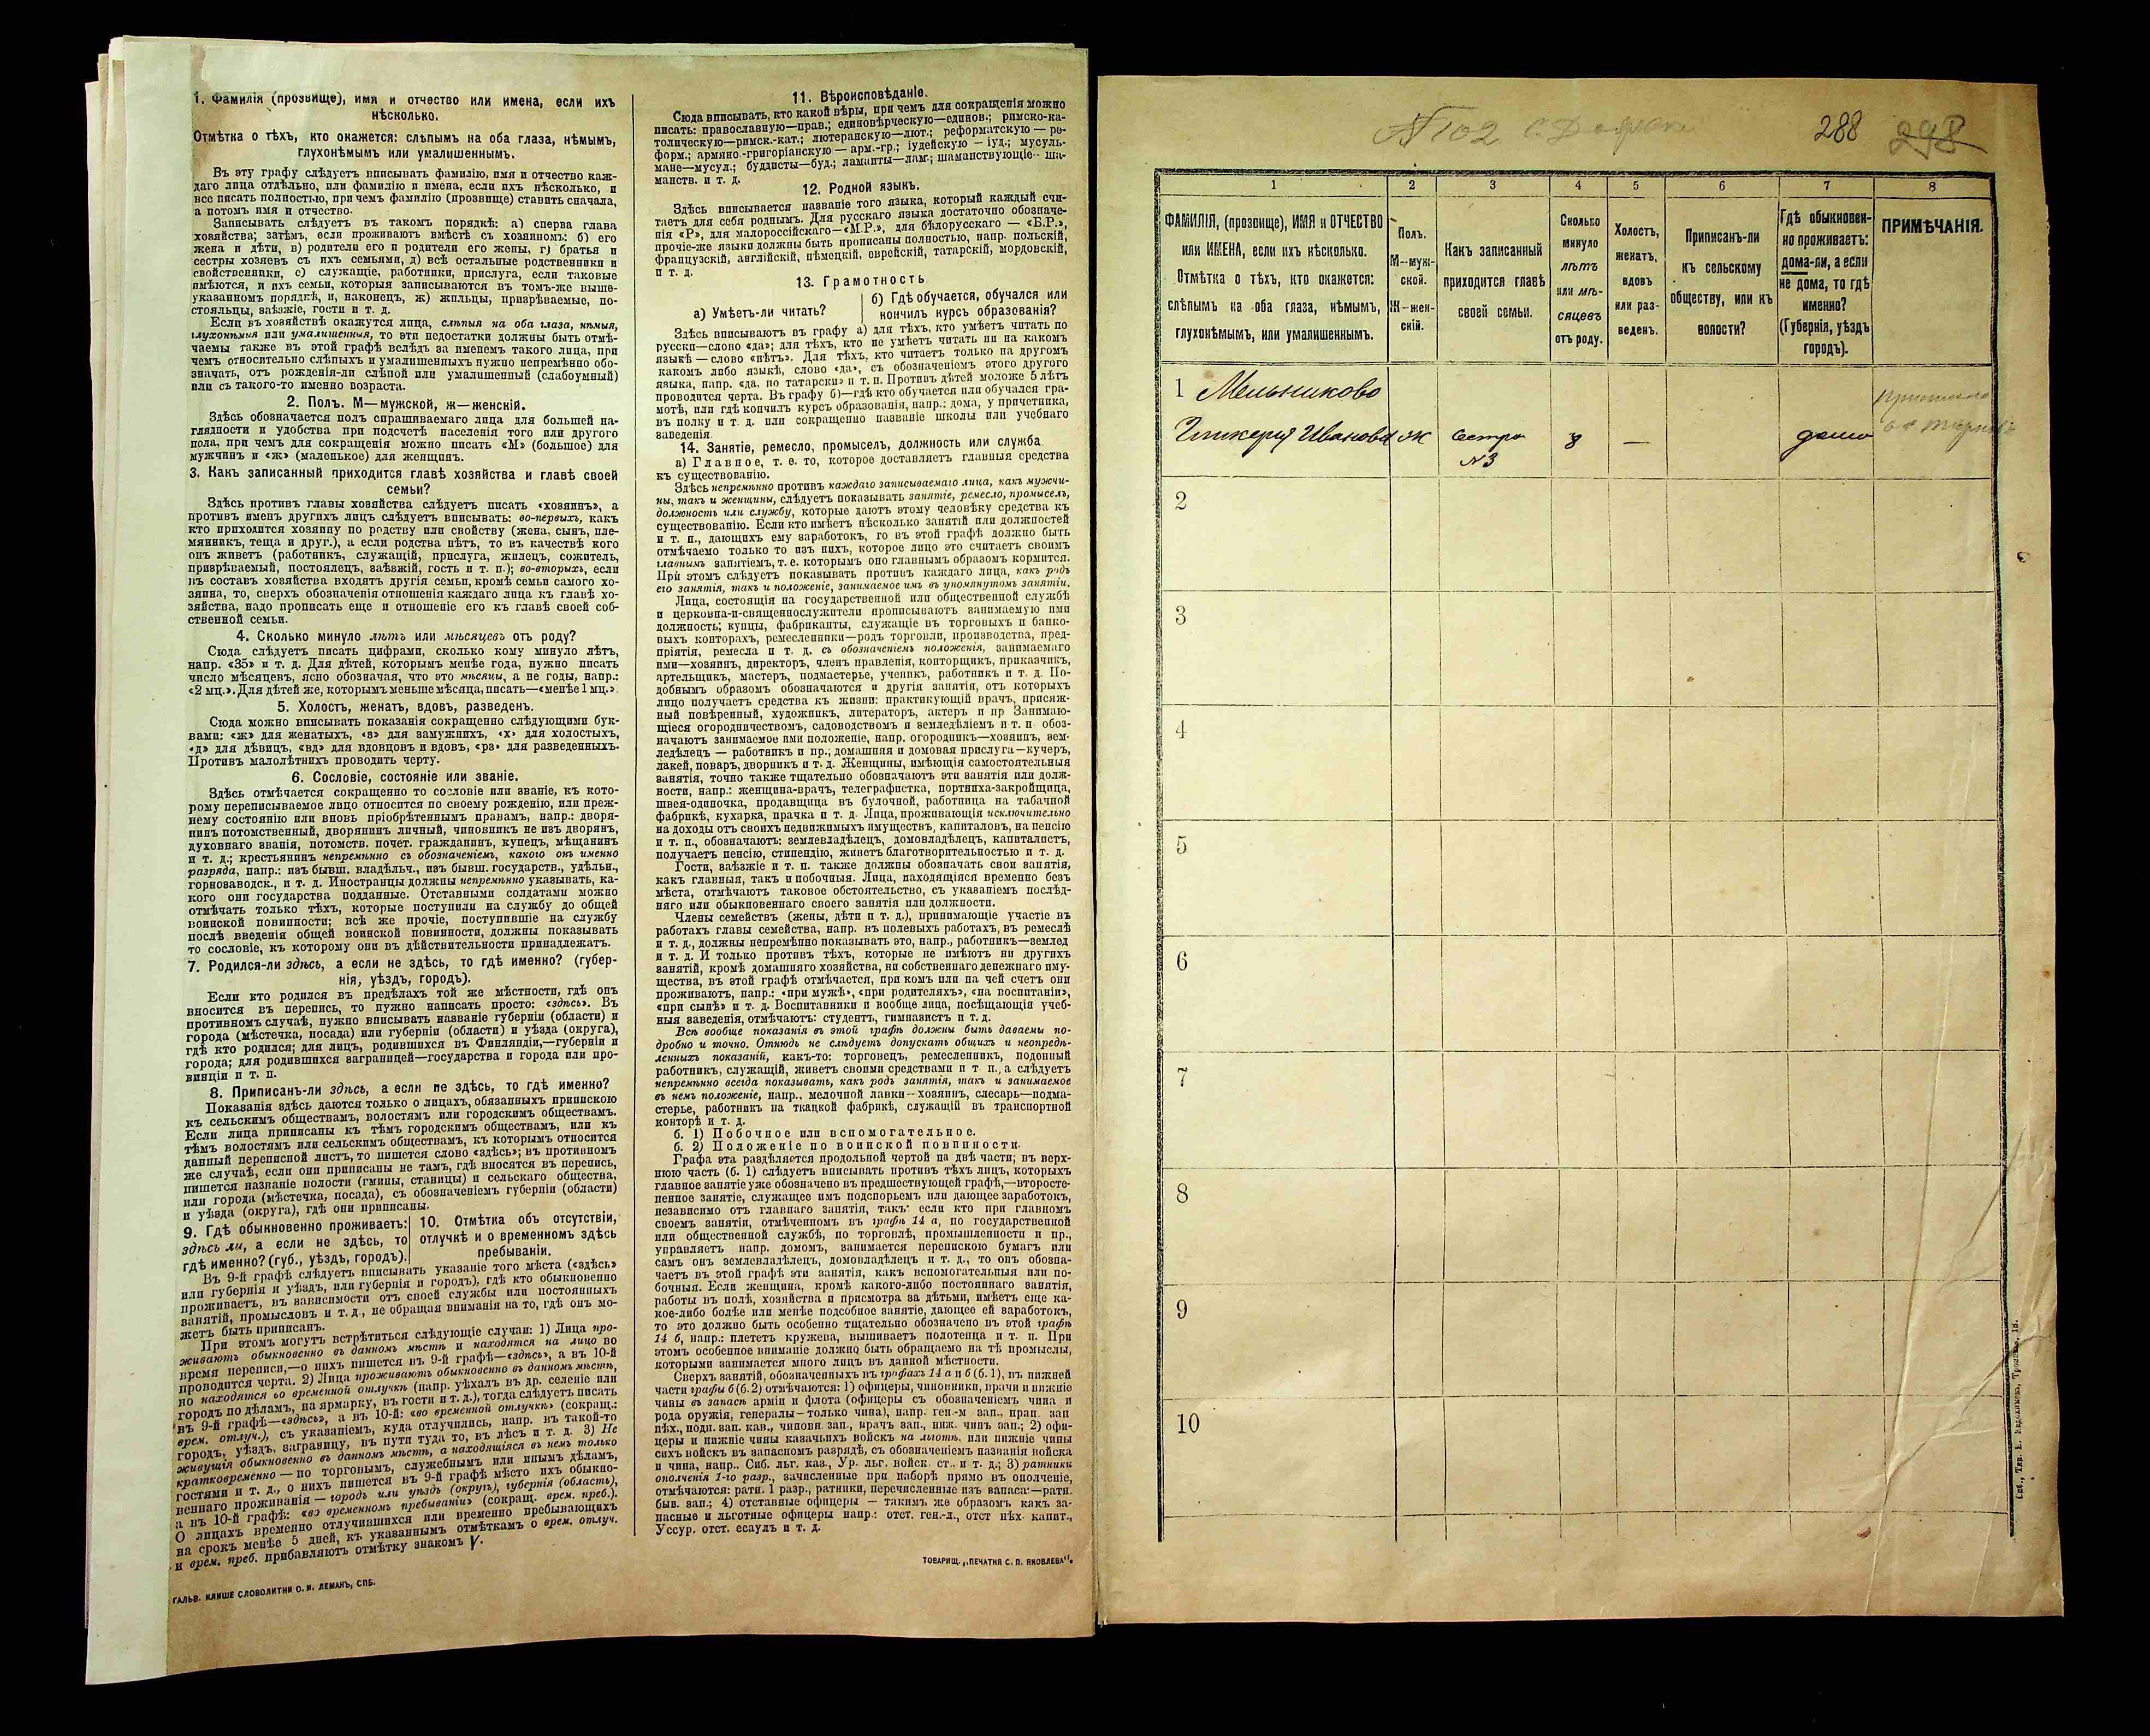 1. Фамилія (прозвище), имя и отчество или имена, если ихъ
нѣсколько.
Отмѣтка о тѣхъ, кто окажется: слѣпымъ на оба глаза, нѣмымъ,
глухонѣмымъ или умалишеннымъ.
Въ эту графу слѣдуетъ вписывать фамилію, имя и отчество каж-
даго лица отдѣльно, или фамилію и имена, если ихъ нѣсколько, и
все писать полностью, при чемъ фамилію (прозвище) ставить сначала,
а потомъ имя и отчество.
Записывать слѣдуетъ въ такомъ порядкѣ: а) сперва глава
хозяйства; затѣмъ, если проживаютъ вмѣстѣ съ хозяиномъ: б) его
жена и дѣти, в) родители его и родители его жены, г) братья и
сестры хозяевъ съ ихъ семьями, д) всѣ остальные родственники и
свойственники, е) служащіе, работники, прислуга, если таковые
имѣются, и ихъ семьи, которыя записываются въ томъ-же выше-
указанномъ порядкѣ, и, наконецъ, ж) жильцы, призрѣваемые, по-
стояльцы, заѣзжіе, гости и т. д.
Если въ хозяйствѣ окажутся лица, слѣпыя на оба глаза, нѣмыя,
глухонѣмыя или умалишенныя, то эти недостатки должны быть отмѣ-
чаемы также въ этой графѣ вслѣдъ за именемъ такого лица, при
чемъ относительно слѣпыхъ и умалишенныхъ нужно непремѣнно обо-
значать, отъ рожденія-ли слѣпой или умалишенный (слабоумный)
или съ такого-то именно возраста.
2. Полъ. М—мужской, ж—женскій.
Здѣсь обозначается полъ спрашиваемаго лица для большей на-
глядности и удобства при подсчетѣ населенія того или другого
пола, при чемъ для сокращенія можно писать «М» (большое) для
мужчинъ и «ж» (маленькое) для женщинъ.
3. Какъ записанный приходится главѣ хозяйства и главѣ своей
семьи?
Здѣсь противъ главы хозяйства слѣдуетъ писать «хозяинъ», а
противъ именъ другихъ лицъ слѣдуетъ вписывать: во-первыхъ, какъ
кто приходится хозяину по родству или свойству (жена, сынъ, пле-
мянникъ, теща и друг.), а если родства нѣтъ, то въ качествѣ кого
онъ живетъ (работникъ, служащій, прислуга, жилецъ, сожитель,
призрѣваемый, постоялецъ, заѣзжій, гость и т. п.); во-вторыхъ, если
въ составъ хозяйства входятъ другія семьи, кромѣ семьи самого хо-
зяина, то, сверхъ обозначенія отношенія каждаго лица къ главѣ хо-
зяйства, надо прописать еще и отношеніе его къ главѣ своей соб-
ственной семьи.
4. Сколько минуло лѣтъ или мѣсяцевъ отъ роду?
Сюда слѣдуетъ писать цифрами, сколько кому минуло лѣтъ,
напр. «35» и т. д. Для дѣтей, которымъ менѣе года, нужно писать
число мѣсяцевъ, ясно обозначая, что это мѣсяцы, а не годы, напр.:
«2 мц.». Для дѣтей же, которымъ меньше мѣсяца, писать—«менѣе 1 мц.».
5. Холостъ, женатъ, вдовъ, разведенъ.
Сюда можно вписывать показанія сокращенно слѣдующими бук-
вами: «ж» для женатыхъ, «з» для замужнихъ, «х» для холостыхъ,
«д» для дѣвицъ, «вд» для вдовцовъ и вдовъ, «рз» для разведенныхъ.
Противъ малолѣтнихъ проводить черту.
6. Сословіе, состояніе или званіе.
Здѣсь отмѣчается сокращенно то сословіе или званіе, къ кото-
рому переписываемое лицо относится по своему рожденію, или преж-
нему состоянію или вновь пріобрѣтеннымъ правамъ, напр.: дворя-
нинъ потомственный, дворянинъ личный, чиновникъ не изъ дворянъ,
духовнаго званія, потомств. почет. гражданинъ, купецъ, мѣщанинъ
и т. д.; крестьянинъ непремѣнно съ обозначеніемъ, какого онъ именно
разряда, напр.: изъ бывш. владѣльч., изъ бывш. государств., удѣльн.,
горнозаводск., и т. д. Иностранцы должны непремѣнно указывать, ка-
кого они государства подданные. Отставными солдатами можно
отмѣчать только тѣхъ, которые поступили на службу до общей
воинской повинности; всѣ же прочіе, поступившіе на службу
послѣ введенія общей воинской повинности, должны показывать
то сословіе, къ которому они въ дѣйствительности принадлежатъ.
7. Родился-ли здѣсь, а если не здѣсь, то гдѣ именно? (губер-
нія, уѣздъ, городъ).
Если кто родился въ предѣлахъ той же мѣстности, гдѣ онъ
вносится въ перепись, то нужно написать просто: «здѣсь». Въ
противномъ случаѣ, нужно вписывать названіе губерніи (области) и
города (мѣстечка, посада) или губерніи (области) и уѣзда (округа),
гдѣ кто родился; для лицъ, родившихся въ Финляндіи,—губерніи и
города; для родившихся заграницей—государства и города или про-
винціи и т. п.
8. Приписанъ-ли здѣсь, а если не здѣсь, то гдѣ именно?
Показанія здѣсь даются только о лицахъ, обязанныхъ припискою
къ сельскимъ обществамъ, волостямъ или городскимъ обществамъ.
Если лица приписаны къ тѣмъ городскимъ обществамъ, или къ
тѣмъ волостямъ или сельскимъ обществамъ, къ которымъ относится
данный переписной листъ, то пишется слово «здѣсь»; въ противномъ
же случаѣ, если они приписаны не тамъ, гдѣ вносятся въ перепись,
пишется названіе волости (гмины, станицы) и сельскаго общества,
или города (мѣстечка, посада), съ обозначеніемъ губерніи (области)
и уѣзда (округа), гдѣ они приписаны.
9. Гдѣ обыкновенно проживаетъ:
здѣсь ли, а если не здѣсь, то
гдѣ именно? (губ., уѣздъ, городъ).
10. Отмѣтка объ отсутствіи,
отлучкѣ и о временномъ здѣсь
пребываніи.
Въ 9-й графѣ слѣдуетъ вписывать указаніе того мѣста («здѣсь»
или губернія и уѣздъ, или губернія и городъ), гдѣ кто обыкновенно
проживаетъ, въ зависимости отъ своей службы или постоянныхъ
занятій, промысловъ и т. д., не обращая вниманія на то, гдѣ онъ мо-
жетъ быть приписанъ.
При этомъ могутъ встрѣтиться слѣдующіе случаи: 1) Лица про-
живаютъ обыкновенно въ данномъ мѣстѣ и находятся на лицо во
время переписи,—о нихъ пишется въ 9-й графѣ—«здѣсь», а въ 10-й
проводится черта. 2) Лица проживаютъ обыкновенно въ данномъ мѣстѣ,
но находятся во временной отлучкѣ (напр. уѣхалъ въ др. селеніе или
городъ по дѣламъ, на ярмарку, въ гости и т. д.), тогда слѣдуетъ писать
въ 9-й графѣ—«здѣсь», а въ 10-й: «во временной отлучкѣ» (сокращ.:
врем. отлуч.), съ указаніемъ, куда отлучились, напр. въ такой-то
городъ, уѣздъ, заграницу, въ пути туда то, въ лѣсъ и т. д. 3) Не
живущія обыкновенно въ данномъ мѣстѣ, а находящіяся въ немъ только
кратковременно — по торговымъ, служебнымъ или инымъ дѣламъ,
гостями и т. д., о нихъ пишется въ 9-й графѣ мѣсто ихъ обыкно-
веннаго проживанія — городъ или уѣздъ (округъ), губернія (область),
а въ 10-й графѣ: «во временномъ пребываніи» (сокращ. врем. преб.).
О лицахъ временно отлучившихся или временно пребывающихъ
на срокъ менѣе 5 дней, къ указаннымъ отмѣткамъ о врем. отлуч.
и врем. преб. прибавляютъ отмѣтку знакомъ V.
ГАЛЬВ. КЛИШЕ СЛОВОЛИТНИ О. И. ЛЕМАНЪ, СПБ.
11. Вѣроисповѣданіе.
Сюда вписывать, кто какой вѣры, при чемъ для сокращенія можно
писать: православную—прав.; единовѣрческую—единов.; римско-ка-
толическую—римск.-кат.; лютеранскую—лют.; реформатскую — ре-
форм.; армяно-григоріанскую — арм.-гр.; іудейскую — іуд.; мусуль-
мане—мусул.; буддисты—буд.; ламаиты—лам.; шаманствующіе—ша-
манств. и т. д.
12. Родной языкъ.
Здѣсь вписывается названіе того языка, который каждый счи-
таетъ для себя роднымъ. Для русскаго языка достаточно обозначе-
нія «Р», для малороссійскаго—«М.Р.», для бѣлорусскаго — «Б.Р.»,
прочіе-же языки должны быть прописаны полностью, напр. польскій,
французскій, англійскій, нѣмецкій, еврейскій, татарскій, мордовскій,
и т. д.
13. Грамотность
а) Умѣетъ-ли читать?
б) Гдѣ обучается, обучался или
кончилъ курсъ образованія?
Здѣсь вписываютъ въ графу а) для тѣхъ, кто умѣетъ читать по
русски—слово «да»; для тѣхъ, кто не умѣетъ читать ни на какомъ
языкѣ — слово «нѣтъ». Для тѣхъ, кто читаетъ только на другомъ
какомъ либо языкѣ, слово «да», съ обозначеніемъ этого другого
языка, напр. «да, по татарски» и т. п. Противъ дѣтей моложе 5 лѣтъ
проводится черта. Въ графу б)—гдѣ кто обучается или обучался гра-
мотѣ, или гдѣ кончилъ курсъ образованія, напр.: дома, у причетника,
въ полку и т. д. или сокращенно названіе школы или учебнаго
заведенія.
14. Занятіе, ремесло, промыселъ, должность или служба
а) Главное, т. е. то, которое доставляетъ главныя средства
къ существованію.
Здѣсь непремѣнно противъ каждаго записываемаго лица, какъ мужчи-
ны, такъ и женщины, слѣдуетъ показывать занятіе, ремесло, промыселъ,
должность или службу, которые даютъ этому человѣку средства къ
существованію. Если кто имѣетъ нѣсколько занятій или должностей
и т. п., дающихъ ему заработокъ, то въ этой графѣ должно быть
отмѣчаемо только то изъ нихъ, которое лицо это считаетъ своимъ
главнымъ занятіемъ, т. е. которымъ оно главнымъ образомъ кормится.
При этомъ слѣдуетъ показывать противъ каждаго лица, какъ родъ
его занятія, такъ и положеніе, занимаемое имъ въ упомянутомъ занятіи.
Лица, состоящія на государственной или общественной службѣ
и церковно-и-священнослужители прописываютъ занимаемую ими
должность; купцы, фабриканты, служащіе въ торговыхъ и банко-
выхъ конторахъ, ремесленники—родъ торговли, производства, пред-
пріятія, ремесла и т. д. съ обозначеніемъ положенія, занимаемаго
ими—хозяинъ, директоръ, членъ правленія, конторщикъ, приказчикъ,
артельщикъ, мастеръ, подмастерье, ученикъ, работникъ и т. д. По-
добнымъ образомъ обозначаются и другія занятія, отъ которыхъ
лицо получаетъ средства къ жизни: практикующій врачъ, присяж-
ный повѣренный, художникъ, литераторъ, актеръ и пр Занимаю-
щіеся огородничествомъ, садоводствомъ и земледѣліемъ и т. п обоз-
начаютъ занимаемое ими положеніе, напр. огородникъ—хозяинъ, зем-
ледѣлецъ — работникъ и пр.; домашняя и домовая прислуга—кучеръ,
лакей, поваръ, дворникъ и т. д. Женщины, имѣющія самостоятельныя
занятія, точно также тщательно обозначаютъ эти занятія или долж-
ности, напр.: женщина-врачъ, телеграфистка, портниха-закройщица,
швея-одиночка, продавщица въ булочной, работница на табачной
фабрикѣ, кухарка, прачка и т. д. Лица, проживающія исключительно
на доходы отъ своихъ недвижимыхъ имуществъ, капиталовъ, на пенсію
и т. п., обозначаютъ: землевладѣлецъ, домовладѣлецъ, капиталистъ,
получаетъ пенсію, стипендію, живетъ благотворительностью и т. д.
Гости, заѣзжіе и т. п. также должны обозначать свои занятія,
какъ главныя, такъ и побочныя. Лица, находящіяся временно безъ
мѣста, отмѣчаютъ таковое обстоятельство, съ указаніемъ послѣд-
няго или обыкновеннаго своего занятія или должности.
Члены семействъ (жены, дѣти и т. д.), принимающіе участіе въ
работахъ главы семейства, напр. въ полевыхъ работахъ, въ ремеслѣ
и т. д., должны непремѣнно показывать это, напр., работникъ—землед
и т. д. И только противъ тѣхъ, которые не имѣютъ ни другихъ
занятій, кромѣ домашняго хозяйства, ни собственнаго денежнаго иму-
щества, въ этой графѣ отмѣчается, при комъ или на чей счетъ они
проживаютъ, напр.: «при мужѣ», «при родителяхъ», «на воспитаніи»,
«при сынѣ» и т. д. Воспитанники и вообще лица, посѣщающія учеб-
ныя заведенія, отмѣчаютъ: студентъ, гимназистъ и т. д.
Всѣ вообще показанія въ этой графѣ должны быть даваемы по-
дробно и точно. Отнюдь не слѣдуетъ допускать общихъ и неопредѣ-
ленныхъ показаній, какъ-то: торговецъ, ремесленникъ, поденный
работникъ, служащій, живетъ своими средствами и т. п., а слѣдуетъ
непремѣнно всегда показывать, какъ родъ занятія, такъ и занимаемое
въ немъ положеніе, напр., мелочной лавки—хозяинъ, слесарь—подма-
стерье, работникъ на ткацкой фабрикѣ, служащій въ транспортной
конторѣ и т. д.
б. 1) Побочное или вспомогательное.
б. 2) Положеніе по воинской повинности.
Графа эта раздѣляется продольной чертой на двѣ части; въ верх-
нюю часть (б. 1) слѣдуетъ вписывать противъ тѣхъ лицъ, которыхъ
главное занятіе уже обозначено въ предшествующей графѣ,—второсте-
пенное занятіе, служащее имъ подспорьемъ или дающее заработокъ,
независимо отъ главнаго занятія, такъ: если кто при главномъ
своемъ занятіи, отмѣченномъ въ графѣ 14 а, по государственной
или общественной службѣ, по торговлѣ, промышленности и пр.,
управляетъ напр. домомъ, занимается перепискою бумагъ или
самъ онъ землевладѣлецъ, домовладѣлецъ и т. д., то онъ обозна-
чаетъ въ этой графѣ эти занятія, какъ вспомогательныя или по-
бочныя. Если женщина, кромѣ какого-либо постояннаго занятія,
работы въ полѣ, хозяйства и присмотра за дѣтьми, имѣетъ еще ка-
кое-либо болѣе или менѣе подсобное занятіе, дающее ей заработокъ,
то это должно быть особенно тщательно обозначено въ этой графѣ
14 б, напр.: плететъ кружева, вышиваетъ полотенца и т. п. При
этомъ особенное вниманіе должно быть обращаемо на тѣ промыслы,
которыми занимается много лицъ въ данной мѣстности.
Сверхъ занятій, обозначенныхъ въ графахъ 14 а и б (б. 1), въ нижней
части графы б (б. 2) отмѣчаются: 1) офицеры, чиновники, врачи и нижніе
чины въ запасѣ арміи и флота (офицеры съ обозначеніемъ чина и
рода оружія, генералы—только чина), напр. ген.-м зап., прап. зап
пѣх., подп. зап. кав., чиновн. зап., врачъ зап., ниж. чинъ зап.; 2) офи-
церы и нижніе чины казачьихъ войскъ на льготѣ, или нижніе чины
сихъ войскъ въ запасномъ разрядѣ, съ обозначеніемъ названія войска
и чина, напр.. Сиб. льг. каз., Ур. льг. войск. ст., и т. д.; 3) ратники
ополченія 1-го разр., зачисленные при наборѣ прямо въ ополченіе,
отмѣчаются: ратн. 1 разр., ратники, перечисленные изъ запаса:—ратн.
быв. зап.; 4) отставные офицеры — такимъ же образомъ какъ за-
пасные и льготные офицеры напр.: отст. ген.-л., отст пѣх. капит.,
Уссур. отст. есаулъ и т. д.
ТОВАРИЩ. „ПЕЧАТНЯ С. П. ЯКОВЛЕВА".
№ 102 с.
288 298
1 2 3 4 5 6 7 8
ФАМИЛІЯ, (прозвище), ИМЯ и ОТЧЕСТВО
или ИМЕНА, если ихъ нѣсколько.
Отмѣтка о тѣхъ, кто окажется:
слѣпымъ на оба глаза, нѣмымъ,
глухонѣмымъ, или умалишеннымъ.
Полъ.
М—муж-
ской.
Ж—жен-
скій.
Какъ записанный
приходится главѣ
своей семьи.
Сколько
минуло
лѣтъ
или мѣ-
сяцевъ
отъ роду.
Холостъ,
женатъ,
вдовъ
или раз-
веденъ.
Приписанъ-ли
къ сельскому
обществу, или къ
волости?
Гдѣ обыкновен-
но проживаетъ:
дома-ли, а если
не дома, то гдѣ
именно?
(Губернія, уѣздъ
городъ).
ПРИМѢЧАНІЯ.
1 Мельникова
Гликерія Иванова ж сестра 8 — дома
№3
2
3
4
5
6
7
8
9
10